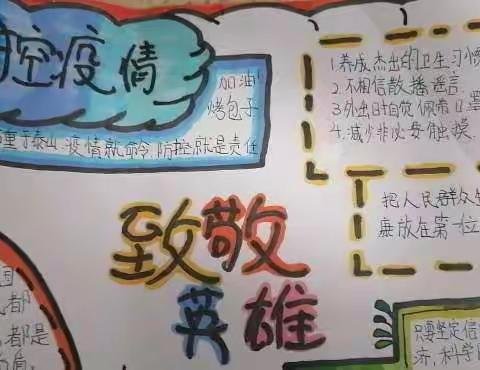 控疫情
加油!
烤包子
重于泰山.疫情就命令,防控就是责任
1.养成杰出的卫生习惯
2.不相信散播谣言.
3.外出时自觉佩带口罩
4.减少非必要触摸.
把人民群众生
康放在第一位
致敬
英雄
国
都
者都是
只要坚定信
济,科学